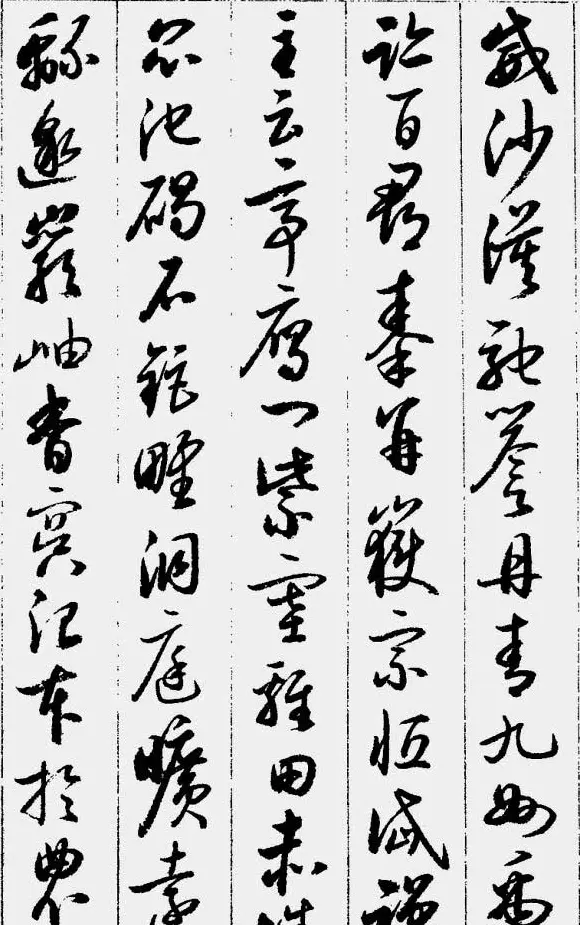 威沙漠馳譽丹青九州禹
跡百郡秦并嶽宗恒岱禪
主云亭鴈門紫塞雞田赤城
昆池碣石鉅野洞庭曠遠
緜邈巖岫杳冥治本於農